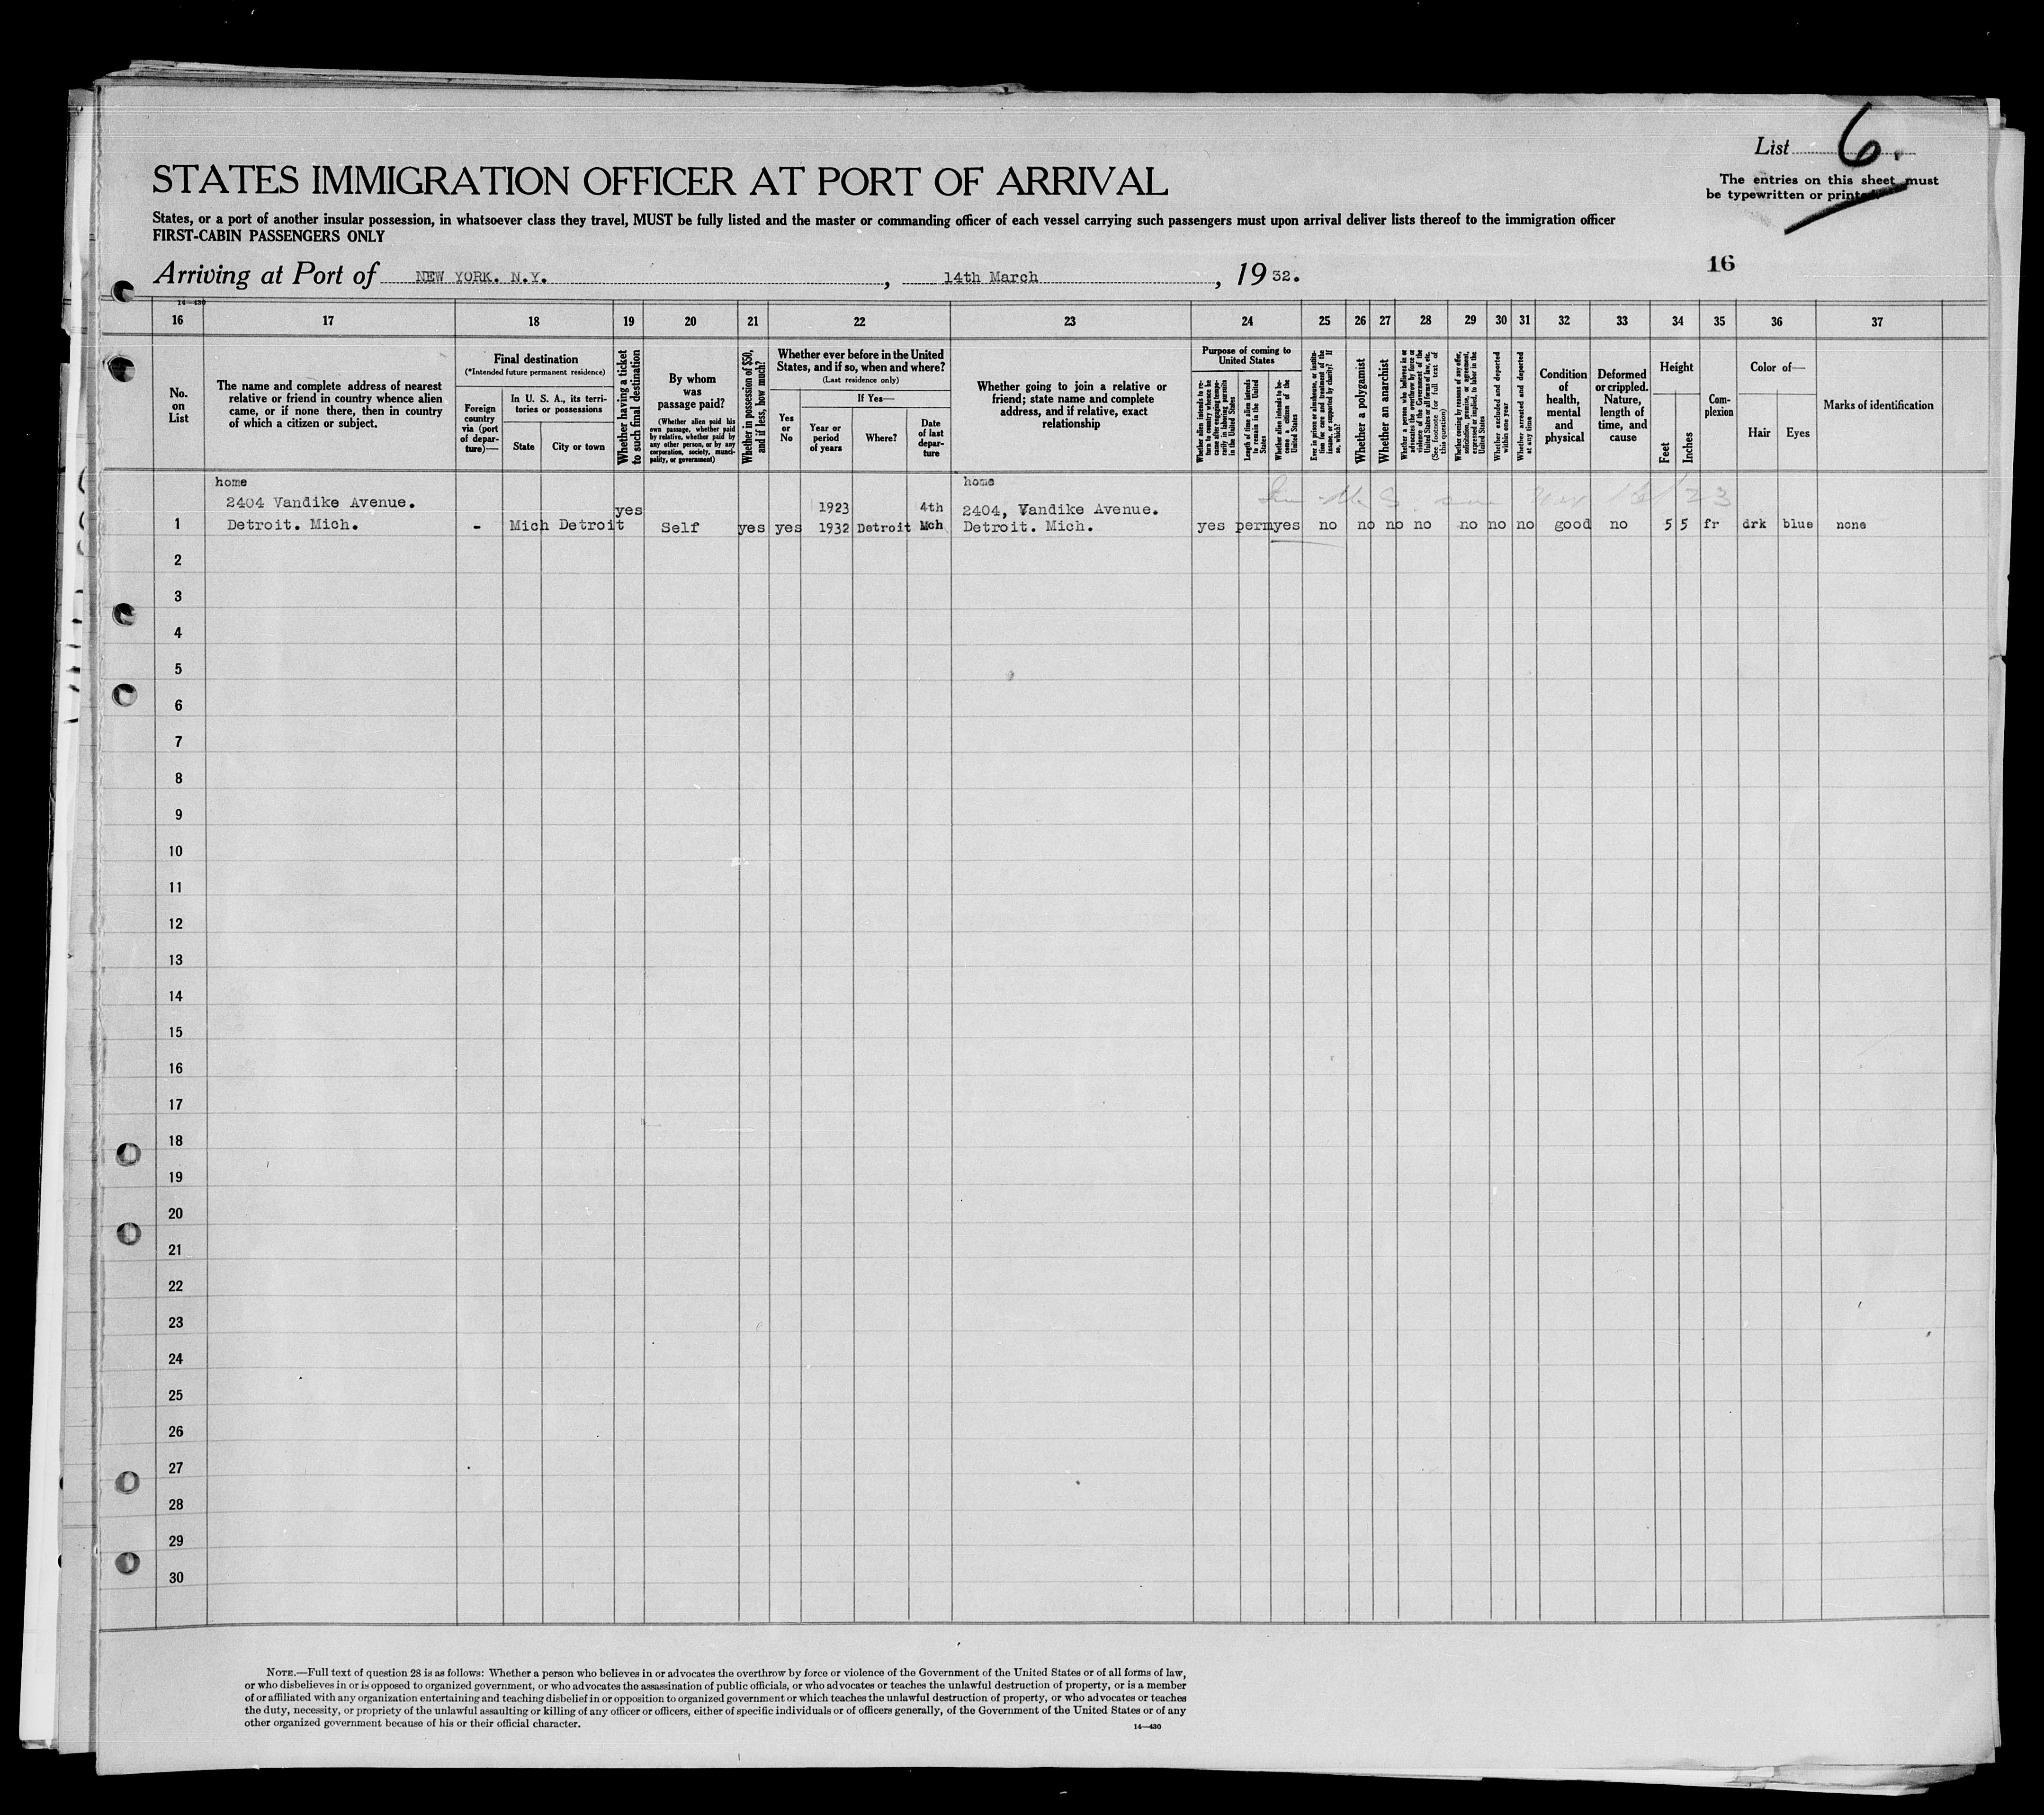 List 6.
STATES IMMIGRATION OFFICER AT PORT OF ARRIVAL
The entries on this sheet must
be typewritten or printed.
States, or a port of another insular possession, in whatsoever class they travel, MUST be fully listed and the master or commanding officer of each vessel carrying such passengers must upon arrival deliver lists thereof to the immigration officer
FIRST-CABIN PASSENGERS ONLY
Arriving at Port of NEW YORK. N.Y. , 14th March , 19 32.
16
14—430
16 17 18 19 20 21 22 23 24 25 26 27 28 29 30 31 32 33 34 35 36 37
No.
on
List
The name and complete address of nearest
relative or friend in country whence alien
came, or if none there, then in country
of which a citizen or subject.
Final destination
(*Intended future permanent residence)
Foreign
country
via (port
of depar-
ture)—
In U. S. A., its terri-
tories or possessions
State
City or town
Whether having a ticket
to such final destination
By whom
was
passage paid?
(Whether alien paid his
own passage, whether paid
by relative, whether paid by
any other person, or by any
corporation, society, munici-
pality, or government)
Whether in possession of $50,
and if less, how much?
Whether ever before in the United
States, and if so, when and where?
(Last residence only)
Yes
or
No
If Yes—
Year or
period
of years
Where?
Date
of last
depar-
ture
Whether going to join a relative or
friend; state name and complete
address, and if relative, exact
relationship
Purpose of coming to
United States
Whether alien intends to re-
turn to country whence he
came after engaging tempo-
rarily in laboring pursuits
in the United States
Length of time alien intends
to remain in the United
States
Whether alien intends to be-
come a citizen of the
United States
Ever in prison or almshouse, or institu-
tion for care and treatment of the
insane, or supported by charity? If
so, which?
Whether a polygamist
Whether an anarchist
Whether a person who believes in or
advocates the overthrow by force or
violence of the Government of the
United States or all forms of law, etc.
(See footnote for full text of
this question)
Whether coming by reason of any offer,
solicitation, promise, or agreement,
expressed or implied, to labor in the
United States
Whether excluded and deported
within one year
Whether arrested and deported
at any time
Condition
of
health,
mental
and
physical
Deformed
or crippled.
Nature,
length of
time, and
cause
Height
Feet
Inches
Com-
plexion
Color of—
Hair
Eyes
Marks of identification
home home
2404 Vandike Avenue. yes 1923 4th 2404, Vandike Avenue.
1 Detroit. Mich. - Mich Detroit Self yes yes 1932 Detroit Mch Detroit. Mich. yes perm yes no no no no no no no good no 5 5 fr drk blue none
2
3
4
5
6
7
8
9
10
11
12
13
14
15
16
17
18
19
20
21
22
23
24
25
26
27
28
29
30
NOTE.—Full text of question 28 is as follows: Whether a person who believes in or advocates the overthrow by force or violence of the Government of the United States or of all forms of law,
or who disbelieves in or is opposed to organized government, or who advocates the assassination of public officials, or who advocates or teaches the unlawful destruction of property, or is a member
of or affiliated with any organization entertaining and teaching disbelief in or opposition to organized government or which teaches the unlawful destruction of property, or who advocates or teaches
the duty, necessity, or propriety of the unlawful assaulting or killing of any officer or officers, either of specific individuals or of officers generally, of the Government of the United States or of any
other organized government because of his or their official character.
14—430